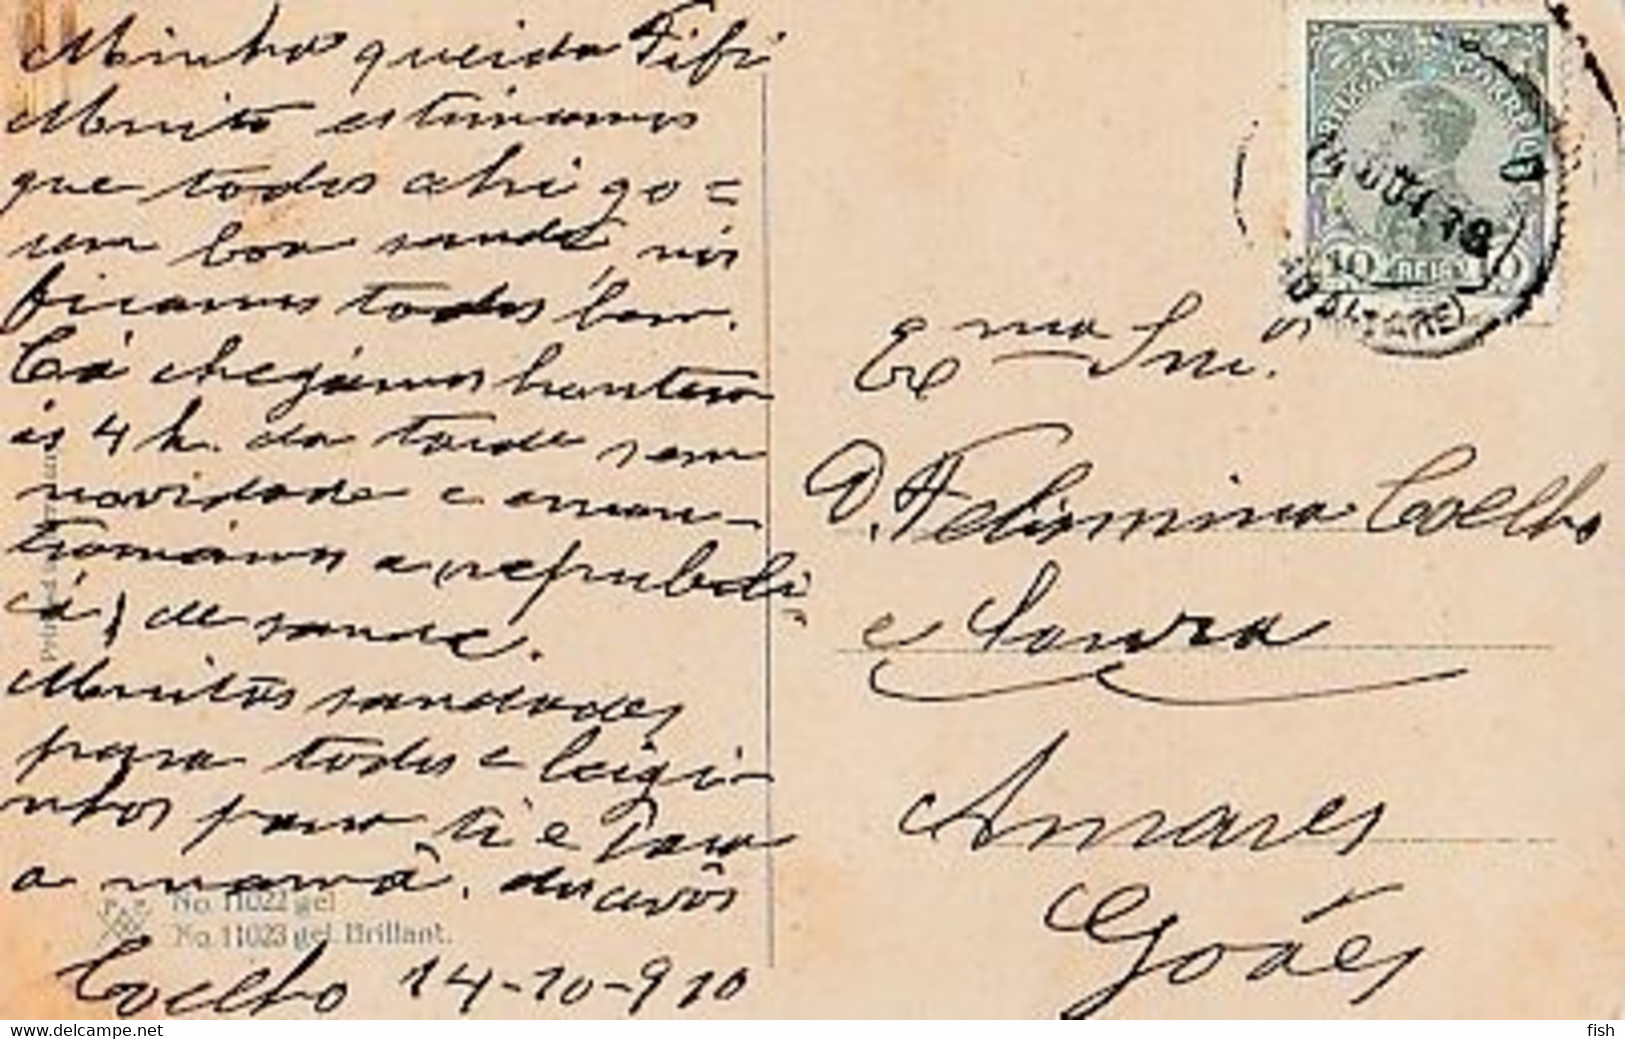 Minha queida Fifi
Muito estimamos
que todos ahi go=
sem boa saude nós
ficamos todos bem.
Cá chegámos hontem
ás 4 h. da tarde sem
novidade e encon-
tramámos a (republi
cá) de saude.
Muitas saudades
para todos e beigi-
nhos para ti e para
a mamã. dos avôs
Coelho 14-10-910
No. 11022 gel
No. 11023 gel Brillant.
PORTUGAL CORREIO
10 REIS 10
Exma Snr.
D. Felismina Coelho
e Souza
Amares
Goães
delcampe.net
fish